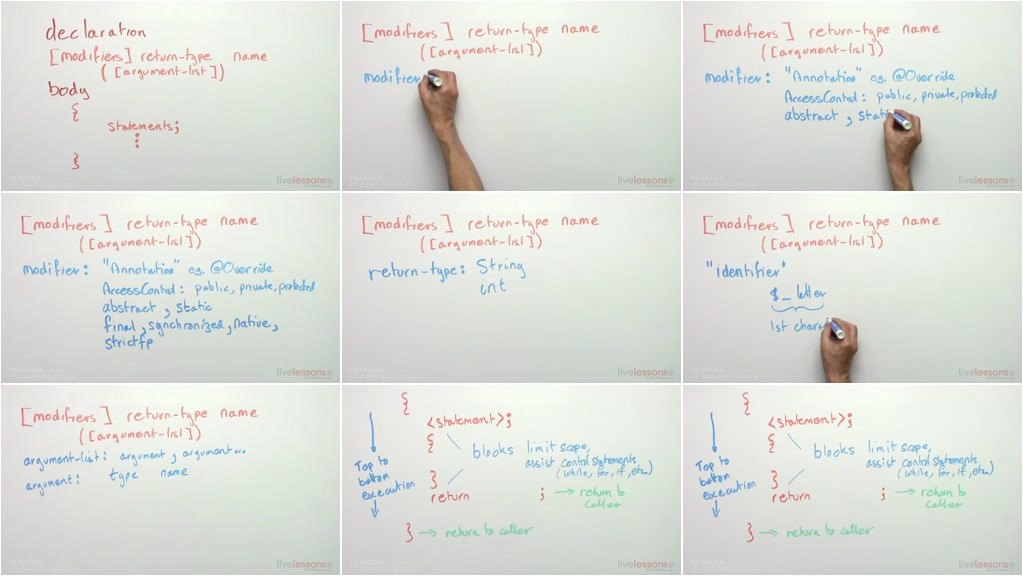 declaration
[modifiers] return-type name
([argument-list])
body
{
statements;
}
livelessons
[modifiers] return-type name
([argument-list])
modifier
livelessons
[modifiers] return-type name
([argument-list])
modifier: "Annotation" eg. @Override
AccessControl: public, private, protected
abstract, stati
livelessons
[modifiers] return-type name
([argument-list])
modifier: "Annotation" eg. @Override
AccessControl: public, private, protected
abstract, static
final, synchronized, native,
strictfp
livelessons
[modifiers] return-type name
([argument-list])
return-type: String
int
livelessons
[modifiers] return-type name
([argument-list])
"identifier"
$ _ letter
1st chara
livelessons
[modifiers] return-type name
([argument-list])
argument-list: argument, argument...
argument: type name
livelessons
{
<statement>;
{
blocks limit scope,
assist control statements
(while, for, if, etc.)
Top to
bottom
execution
}
return ; → return to
caller
} → return to caller
livelessons
{
<statement>;
{
blocks limit scope,
assist control statements
(while, for, if, etc.)
Top to
bottom
execution
}
return ; → return to
caller
} → return to caller
livelessons